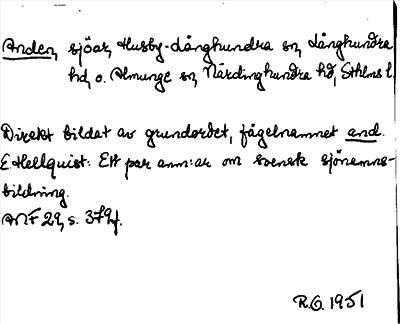 Anden, sjöar, Husby-Långhundra sn, Långhundra
hd, o. Almunge sn, Närdinghundra hd, Sthlms l.
Direkt bildat av grundordet, fågelnamnet and.
E. Hellquist: Ett par anm:ar om svensk sjönamns-
bildning.
ANF 29, s. 379f.
R.O. 1951